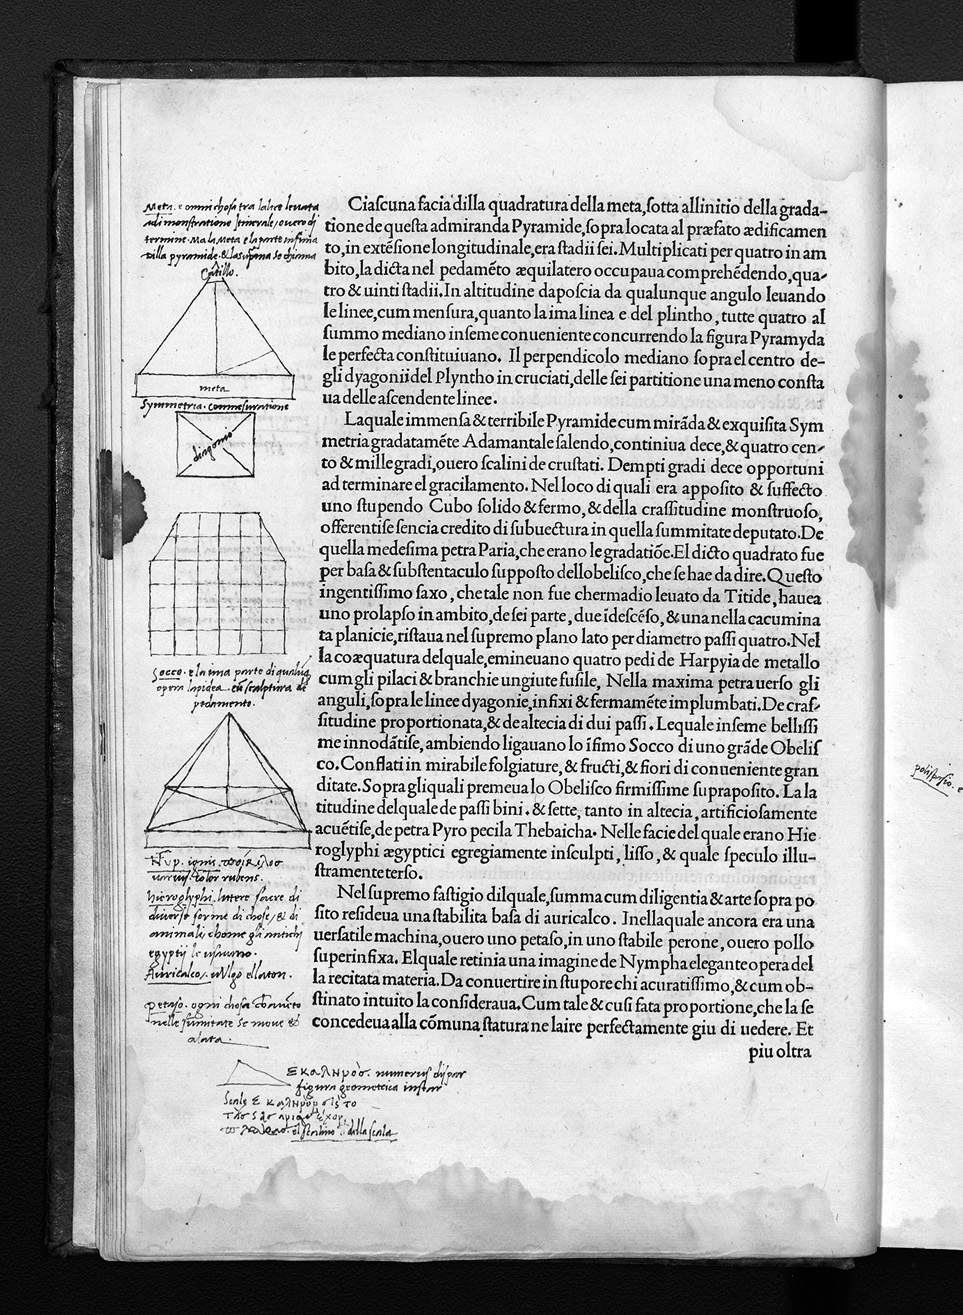 Ciaſcuna facia dilla quadratura della meta,ſotta allinitio della grada-
tione de queſta admiranda Pyramide,ſopra locata al præfato ædificamen
to,in extẽſione longitudinale,era ſtadii ſei. Multiplicati per quatro in am
bito,la dicta nel pedamẽto æquilatero occupaua comprehẽdendo,qua-
tro & uinti ſtadii.In altitudine dapoſcia da qualunque angulo leuando
le linee,cum menſura,quanto la ima linea e del plintho, tutte quatro al
ſummo mediano inſeme conueniente concurrendo la figura Pyramyda
le perfecta conſtituiuano. Il perpendicolo mediano ſopra el centro de-
gli dyagonii del Plyntho in cruciati,delle ſei partitione una meno conſta
ua delle aſcendente linee.
Laquale immenſa & terribile Pyramide cum mirãda & exquiſita Sym
metria gradatamẽte Adamantale ſalendo, continiua dece,& quatro cen-
to & mille gradi,ouero ſcalini de cruſtati. Dempti gradi dece opportuni
ad terminare el gracilamento. Nel loco di quali era appoſito & ſuffecto
uno ſtupendo Cubo ſolido & fermo, & della craſſitudine monſtruoſo,
offerentiſe ſencia credito di ſubuectura in quella ſummitate deputato.De
quella medeſima petra Paria,che erano le gradatiõe.El dicto quadrato fue
per baſa & ſubſtentaculo ſuppoſto dello obeliſco,che ſe hae da dire.Queſto
ingentiſſimo ſaxo, che tale non fue chermadio leuato da Titide, hauea
uno prolapſo in ambito,de ſei parte, due ĩdeſcẽſo, & una nella cacumina
ta planicie,riſtaua nel ſupremo plano lato per diametro paſſi quatro.Nel
la coæquatura delquale,emineuano quatro pedi de Harpyia de metallo
cum gli pilaci & branchie ungiute fuſile, Nella maxima petra uerſo gli
anguli,ſopra le linee dyagonie,infixi & fermamẽte implumbati.De craſ-
ſitudine proportionata,& de altecia di dui paſſi. Lequale inſeme belliſſi
me innodãtiſe, ambiendo ligauano lo ĩfimo Socco di uno grãde Obeliſ
co. Conflati in mirabile folgiature, & fructi,& fiori di conueniente gran
ditate. Sopra gli quali premeua lo Obeliſco firmiſſime ſupra poſito. La la
titudine delquale de paſſi bini. & ſette, tanto in altecia, artificioſamente
acuẽtiſe,de petra Pyro pecila Thebaicha. Nelle facie del quale erano Hie
roglyphi ægyptici egregiamente inſculpti, liſſo, & quale ſpeculo illu-
ſtramente terſo.
Nel ſupremo faſtigio dilquale,ſumma cum diligentia & arte ſopra po
ſito reſideua una ſtabilita baſa di auricalco. Inellaquale ancora era una
uerſatile machina,ouero uno petaſo,in uno ſtabile perone, ouero pollo
ſuperinfixa. Elquale retinia una imagine de Nympha elegante opera del
la recitata materia. Da conuertire in ſtupore chi acuratiſſimo,& cum ob-
ſtinato intuito la conſideraua. Cum tale & cuſi fata proportione,che la ſe
concedeua alla cõmuna ſtatura ne laire perfectamente giu di uedere. Et
piu oltra
Meta. e omni chosa tra lalice levata
ad monstratione Itinerale, overo di
termine. Ma la Meta e la parte infima
dilla pyramide. & la supᵃna se chiama
meta
Symmetria. commesuratione
diagonio
Socco. e la ima parte di
opera lapidea
pedamento.
ignis.
color rubens.
hieroglyphi. litere sacre di
diverse forme di chose, & di
animali, chome gli antichi
egyptii le usavano.
Auricalco. vulgo ellaton.
petaso. ogni chosa
nelle sumitate se move &
alata.
numerus dispar
figura geometrica instar
della scala